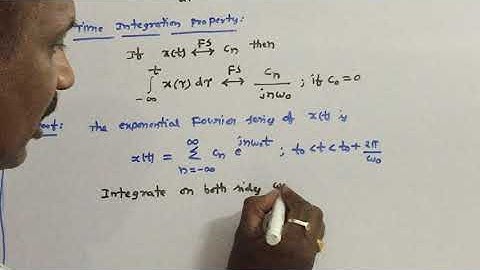 Time Integration Property:
If x(t) FS↔ cn then
t∫-∞ x(τ) dτ FS↔ cn/jnω0 ; if c0 = 0
The exponential Fourier series of x(t) is
x(t) = ∞Σn=-∞ cn e^jnω0t ; t0 < t < t0 + 2π/ω0
Integrate on both sides